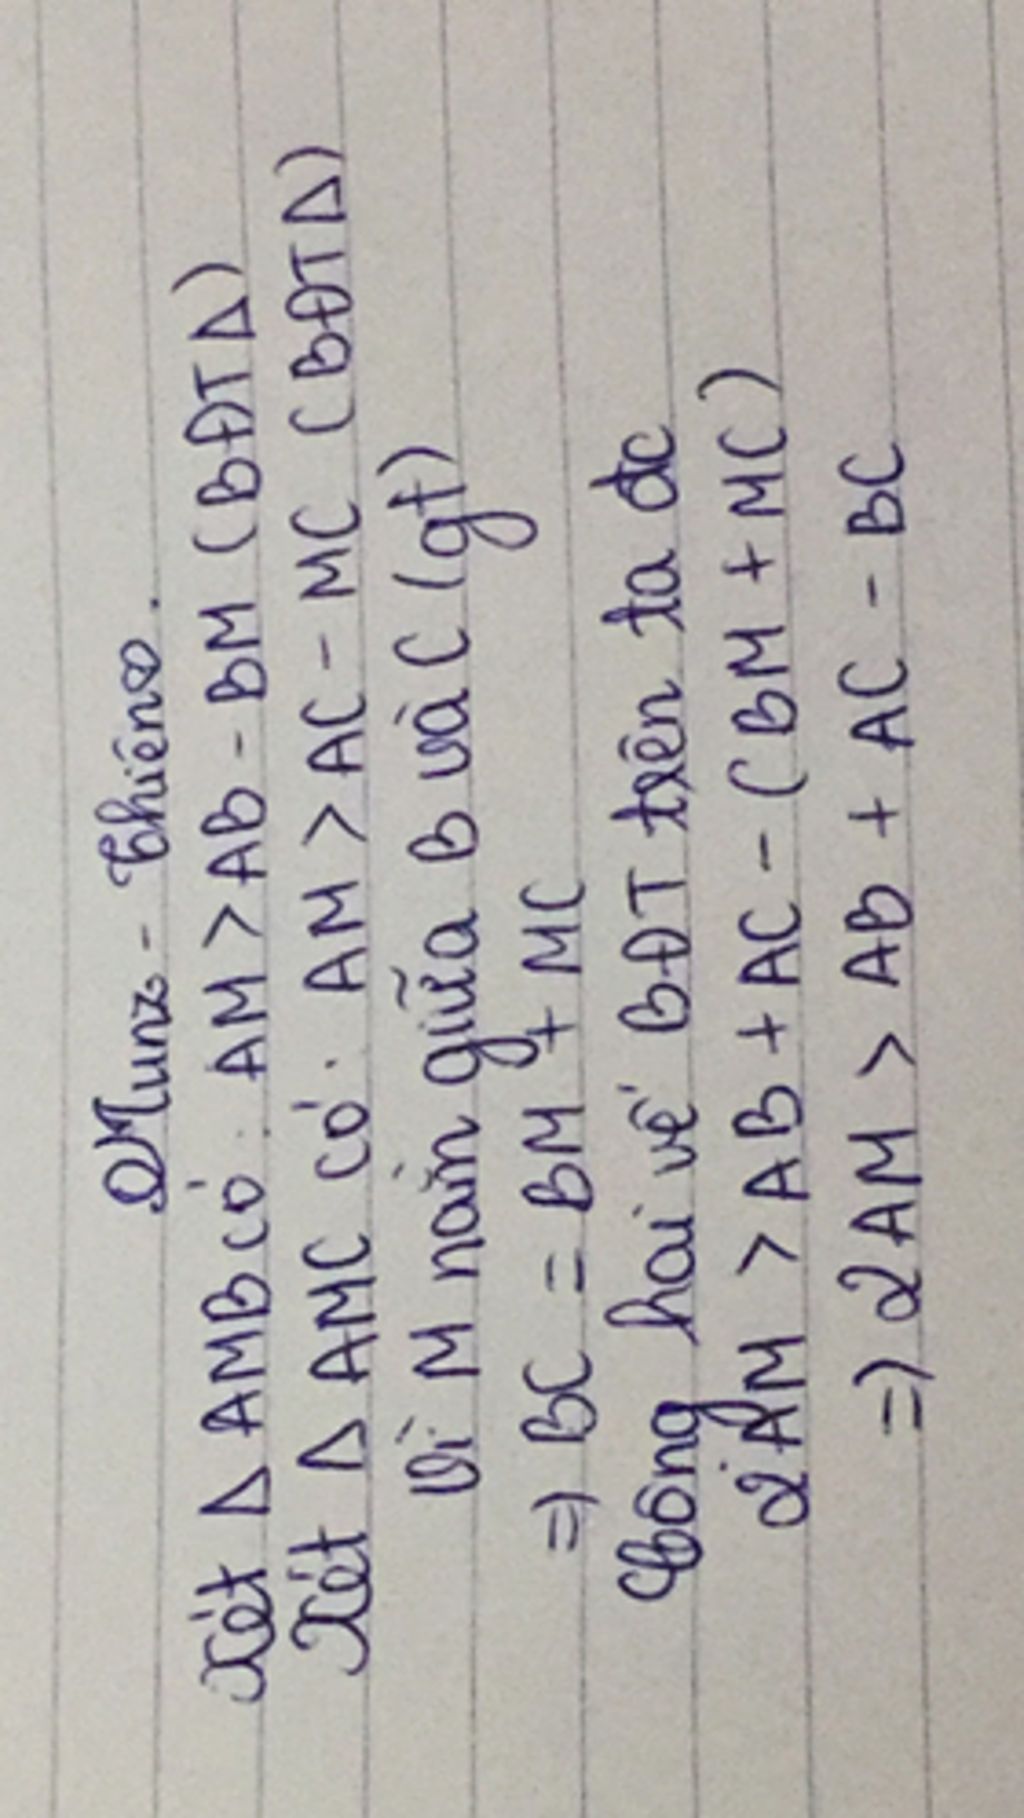 Xét Δ AMB có: AM > AB - BM (BĐT Δ)
Xét Δ AMC có: AM > AC - MC (BĐT Δ)
Vì M nằm giữa B và C (gt)
=) BC = BM + MC
Cộng hai vế BĐT trên ta đc
2AM > AB + AC - (BM + MC)
=) 2AM > AB + AC - BC